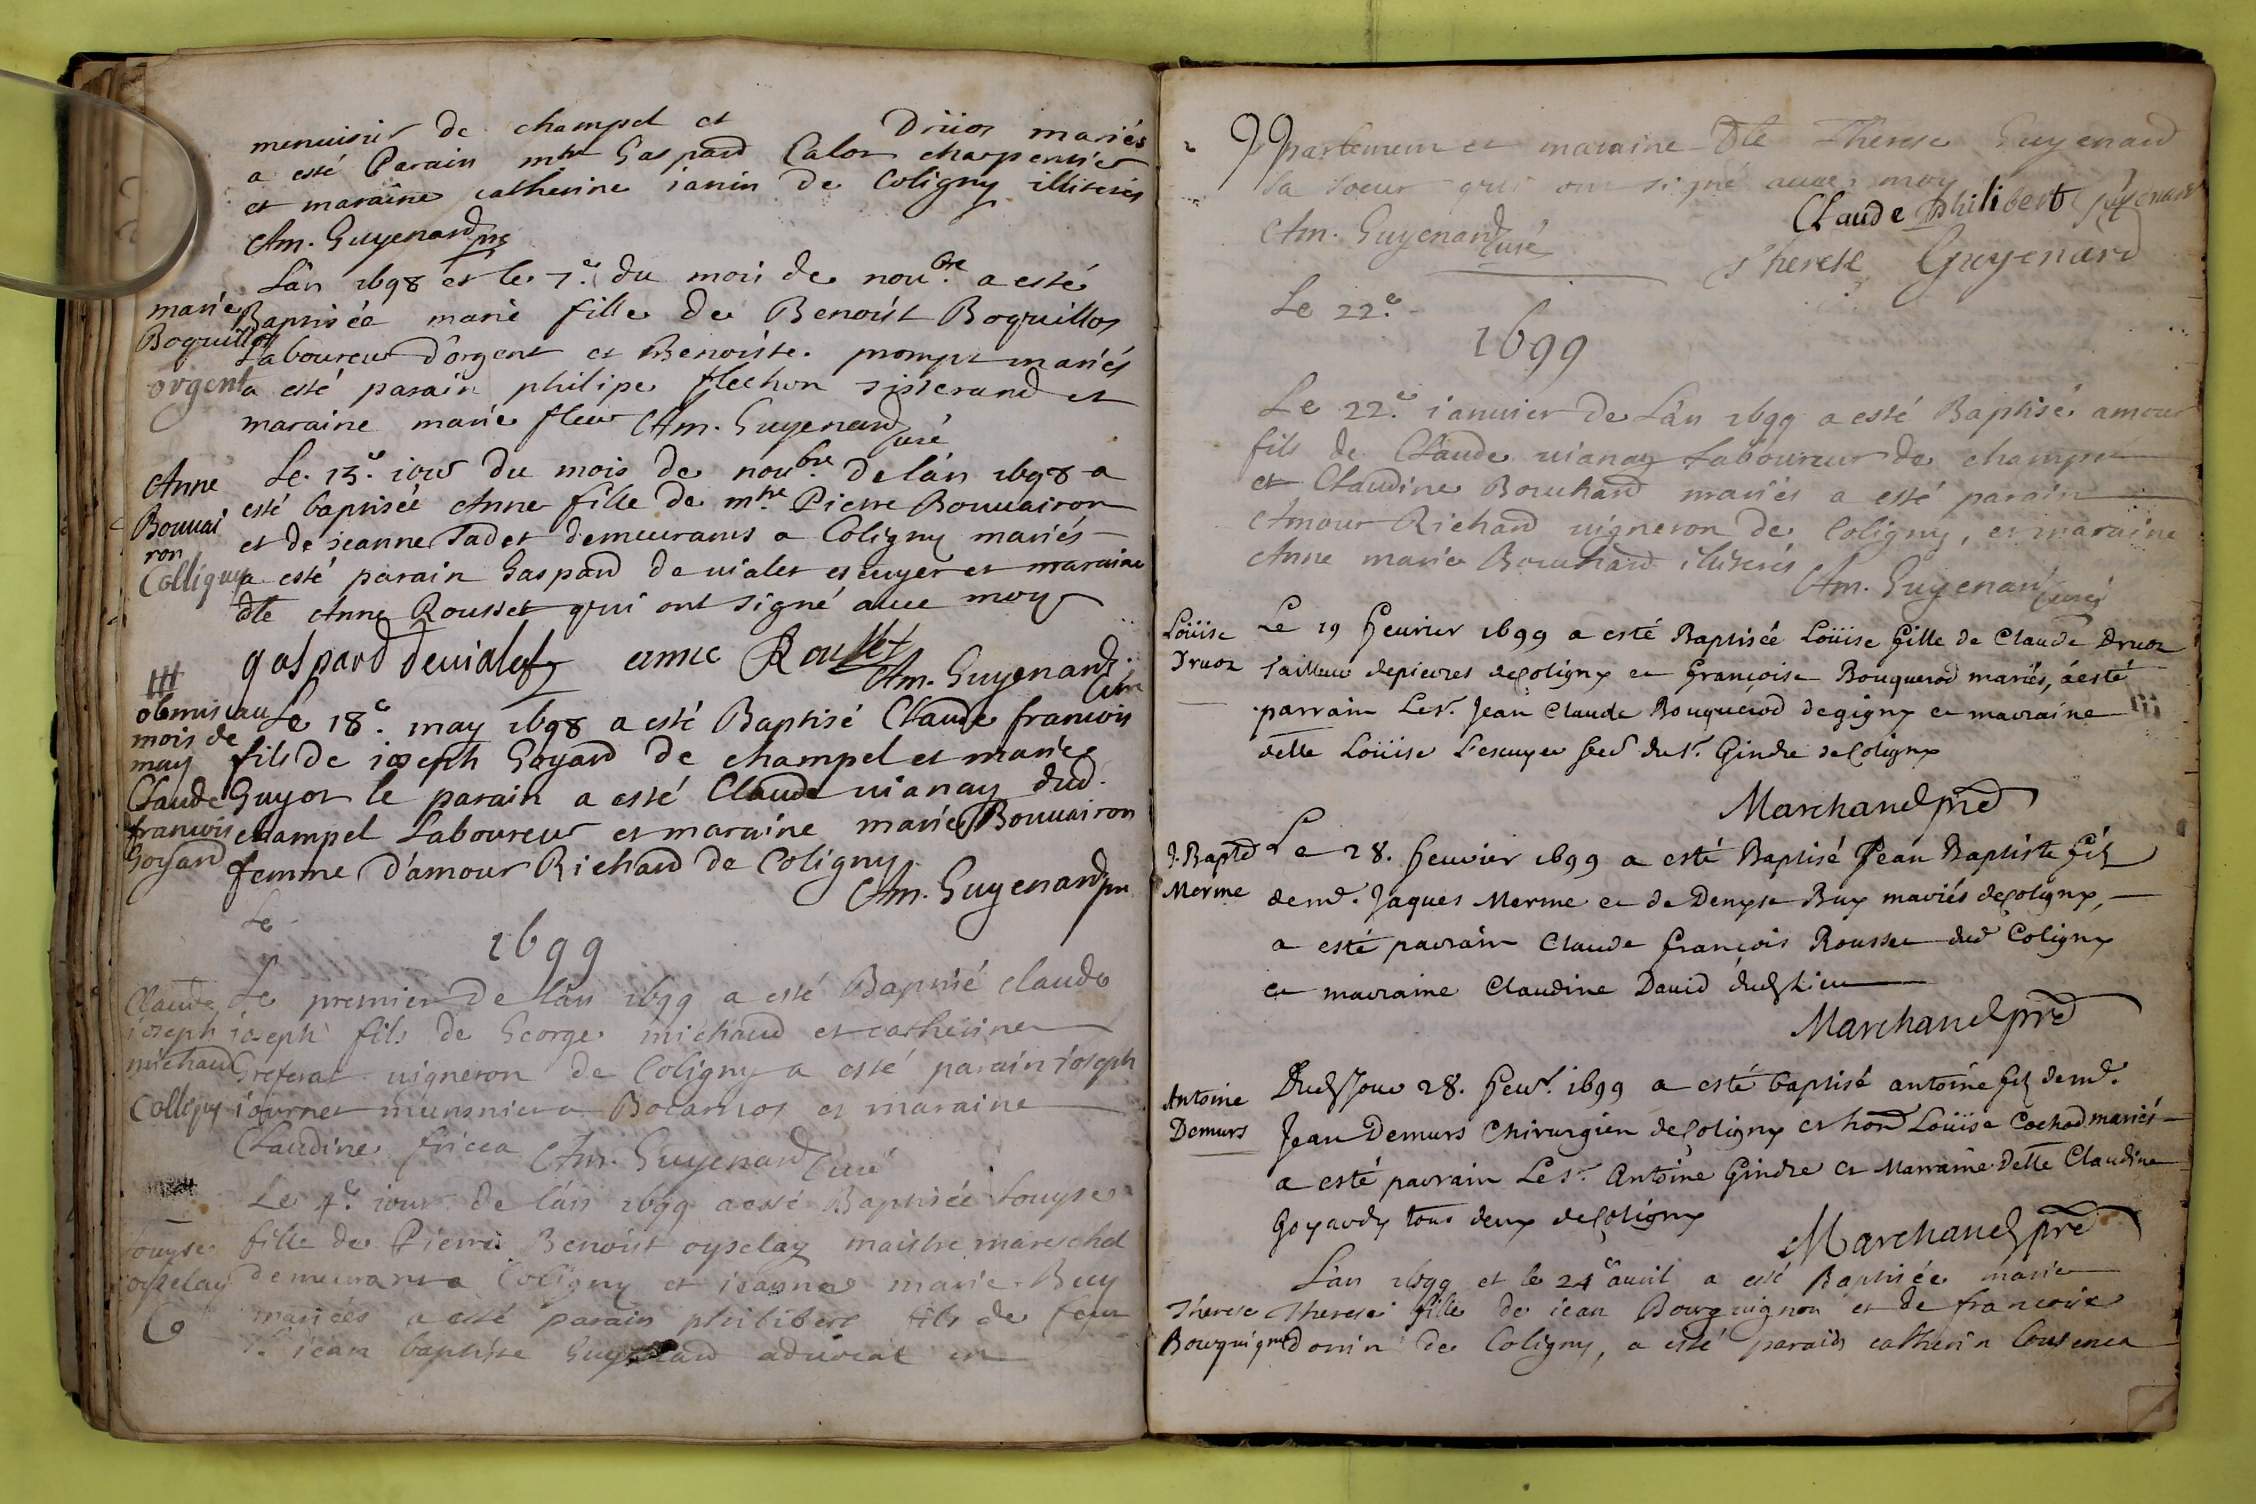 menuisir de champel et Drüos mariés
a esté Parain mtre Gaspard Calos charpentier
et maraine catherine ianin de Coligny illiterés
Am. Guyenard pre
Lan 1698 et le 7e. du mois de novbre. a esté
marie Baptisée marie fille de Benoist Boquillos
Boquillos Laboureur d'orgent et Benoiste prompt mariés
orgent a esté parain philipe flechon tisserand et
maraine marie fleur Am. Guyenard curé
Anne Le 13e. iour du mois de novbre de lán 1698 a
esté baptisée Anne fille de mtre Pierre Bouvairon
Bouvai
ron et de jeanne Tadet demeurants a Coligny mariés
Colligny a esté parain Gaspard de vialet escuyer et maraine
dlle Anne Rousset qui ont signé avec moy
gaspard devialet anne Rousset
Am. Guyenard
curé
obmis au Le 18e. may 1698 a esté Baptisé Claude francois
mois de
may fils de ioseph Goyard de champel et marie
Claude Guyot le parain a esté Claude vianay dud.
francois champel Laboureur et maraine marie Bouvairon
Goyard femme d'amour Richard de Coligny
Am. Guyenard pre
Le
1699
Claude Le premier de lán 1699 a esté Baptisé claude
ioseph ioseph fils de George michaud et catherine
michaud Greferat vigneron de Coligny a esté parain ioseph
Colligny iournet munsnier a Bocarnos et maraine
Claudine fricea Am. Guyenard Curé
Le 4e. iour de lán 1699 a esté Baptisée Louyse
Louyse fille de Pierre Benoist oyselay maistre mareschal
oyselay demeurant a Coligny et ieanne marie Buy
mariées a esté parain philibert fils de feu
Sr. iean baptiste Guyenard advocat en
Parlement et maraine Dlle Therese Guyenard
sa soeur qui ont signé avec moy
Claude philibert Guyenard
Am. Guyenard Curé
Therese Guyenard
Le 22e.
1699
Le 22e. ianvier de Lán 1699 a esté Baptisé amour
fils de Claude vianay Laboureur de champel
et Claudine Bouchard mariés a esté parain
Amour Richard vigneron de Coligny, et maraine
Anne marie Bouchard illiterés
Am. Guyenard curé
Loüise Le 19 feurier 1699 a esté Baptisée Loüise fille de Claude Druoz
Druoz Tailleur de pierres de Coligny et françoise Bouquerod mariés, a esté
parrain Le sr. Jean Claude Bouquerod de gigny et marraine
delle Loüise L'escuyer du sr. Gindre de Coligny
Marchand pre
J. Bapte Le 28. feuvier 1699 a esté Baptisé Jean Baptiste filz
Merme de md. Jaques Merme et de Denyse Buy mariés de Coligny,
a esté parrain Claude françois Rousset dud Coligny
et marraine Claudine David dud lieu
Marchand pre
Antoine Dud Jour 28. feuvr. 1699 a esté baptisé antoine filz de md.
Demurs Jean Demurs Chirurgien de Coligny et hond Loüise Cochod mariés
a esté parrain Le sr. Antoine Gindre et Marraine delle Claudine
Goyardy tous deux de Coligny
Marchand pre
L'an 1699 et le 24e avril a esté Baptisée marie
Therese Therese fille de iean Bourguignon et de francoise
Bourguignon donin de Coligny, a esté parain catherin Cousenca